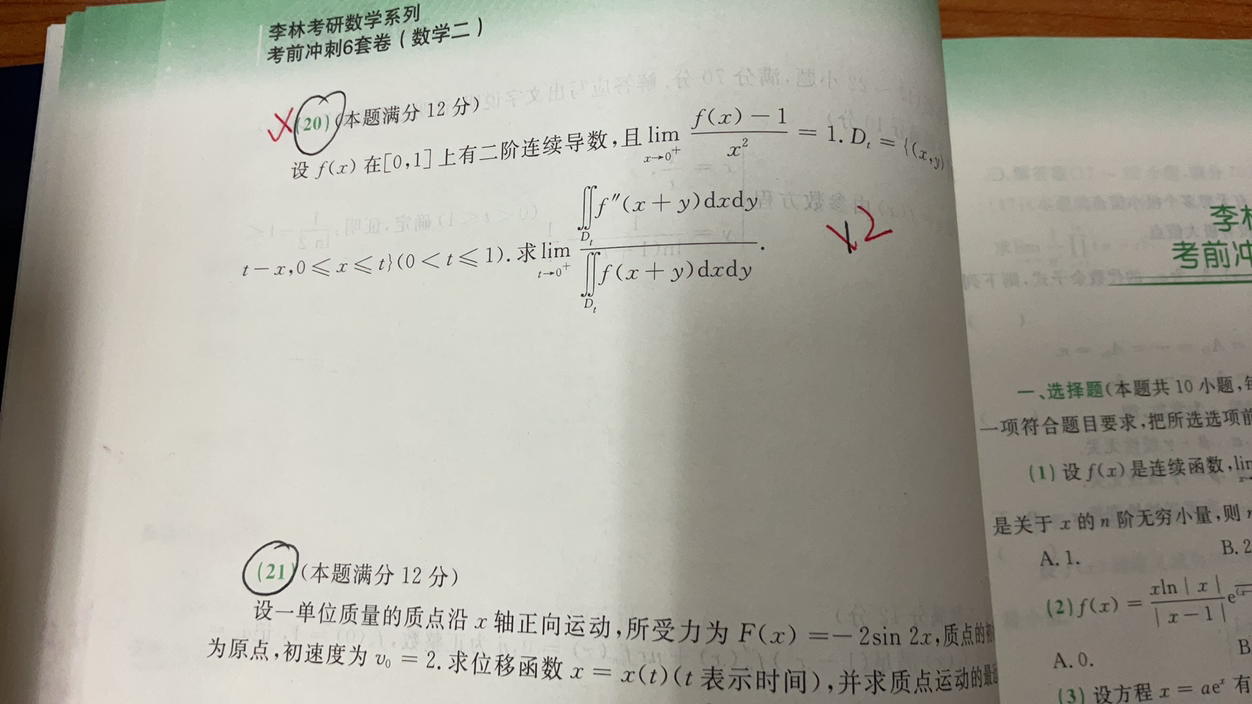 李林考研数学系列
考前冲刺6套卷(数学二)
(20)(本题满分 12 分)
设 f(x) 在[0,1]上有二阶连续导数,且 lim_{x→0⁺} (f(x)-1)/x² = 1. D_t = {(x,y)
t-x,0⩽x⩽t}(0<t⩽1). 求 lim_{t→0⁺} ∬_{D_t} f″(x+y)dxdy / ∬_{D_t} f(x+y)dxdy .
2
(21)(本题满分 12 分)
设一单位质量的质点沿 x 轴正向运动,所受力为 F(x) =-2sin 2x,质点的初
为原点,初速度为 v₀ = 2. 求位移函数 x = x(t)(t 表示时间),并求质点运动的最
李林
考前冲
一、选择题(本题共 10 小题,
一项符合题目要求,把所选选项前
(1) 设 f(x) 是连续函数,lim
是关于 x 的 n 阶无穷小量,则
A. 1.
B. 2
(2) f(x) = xln|x| / |x-1| e
A. 0.
B
(3) 设方程 x = ae^x 有